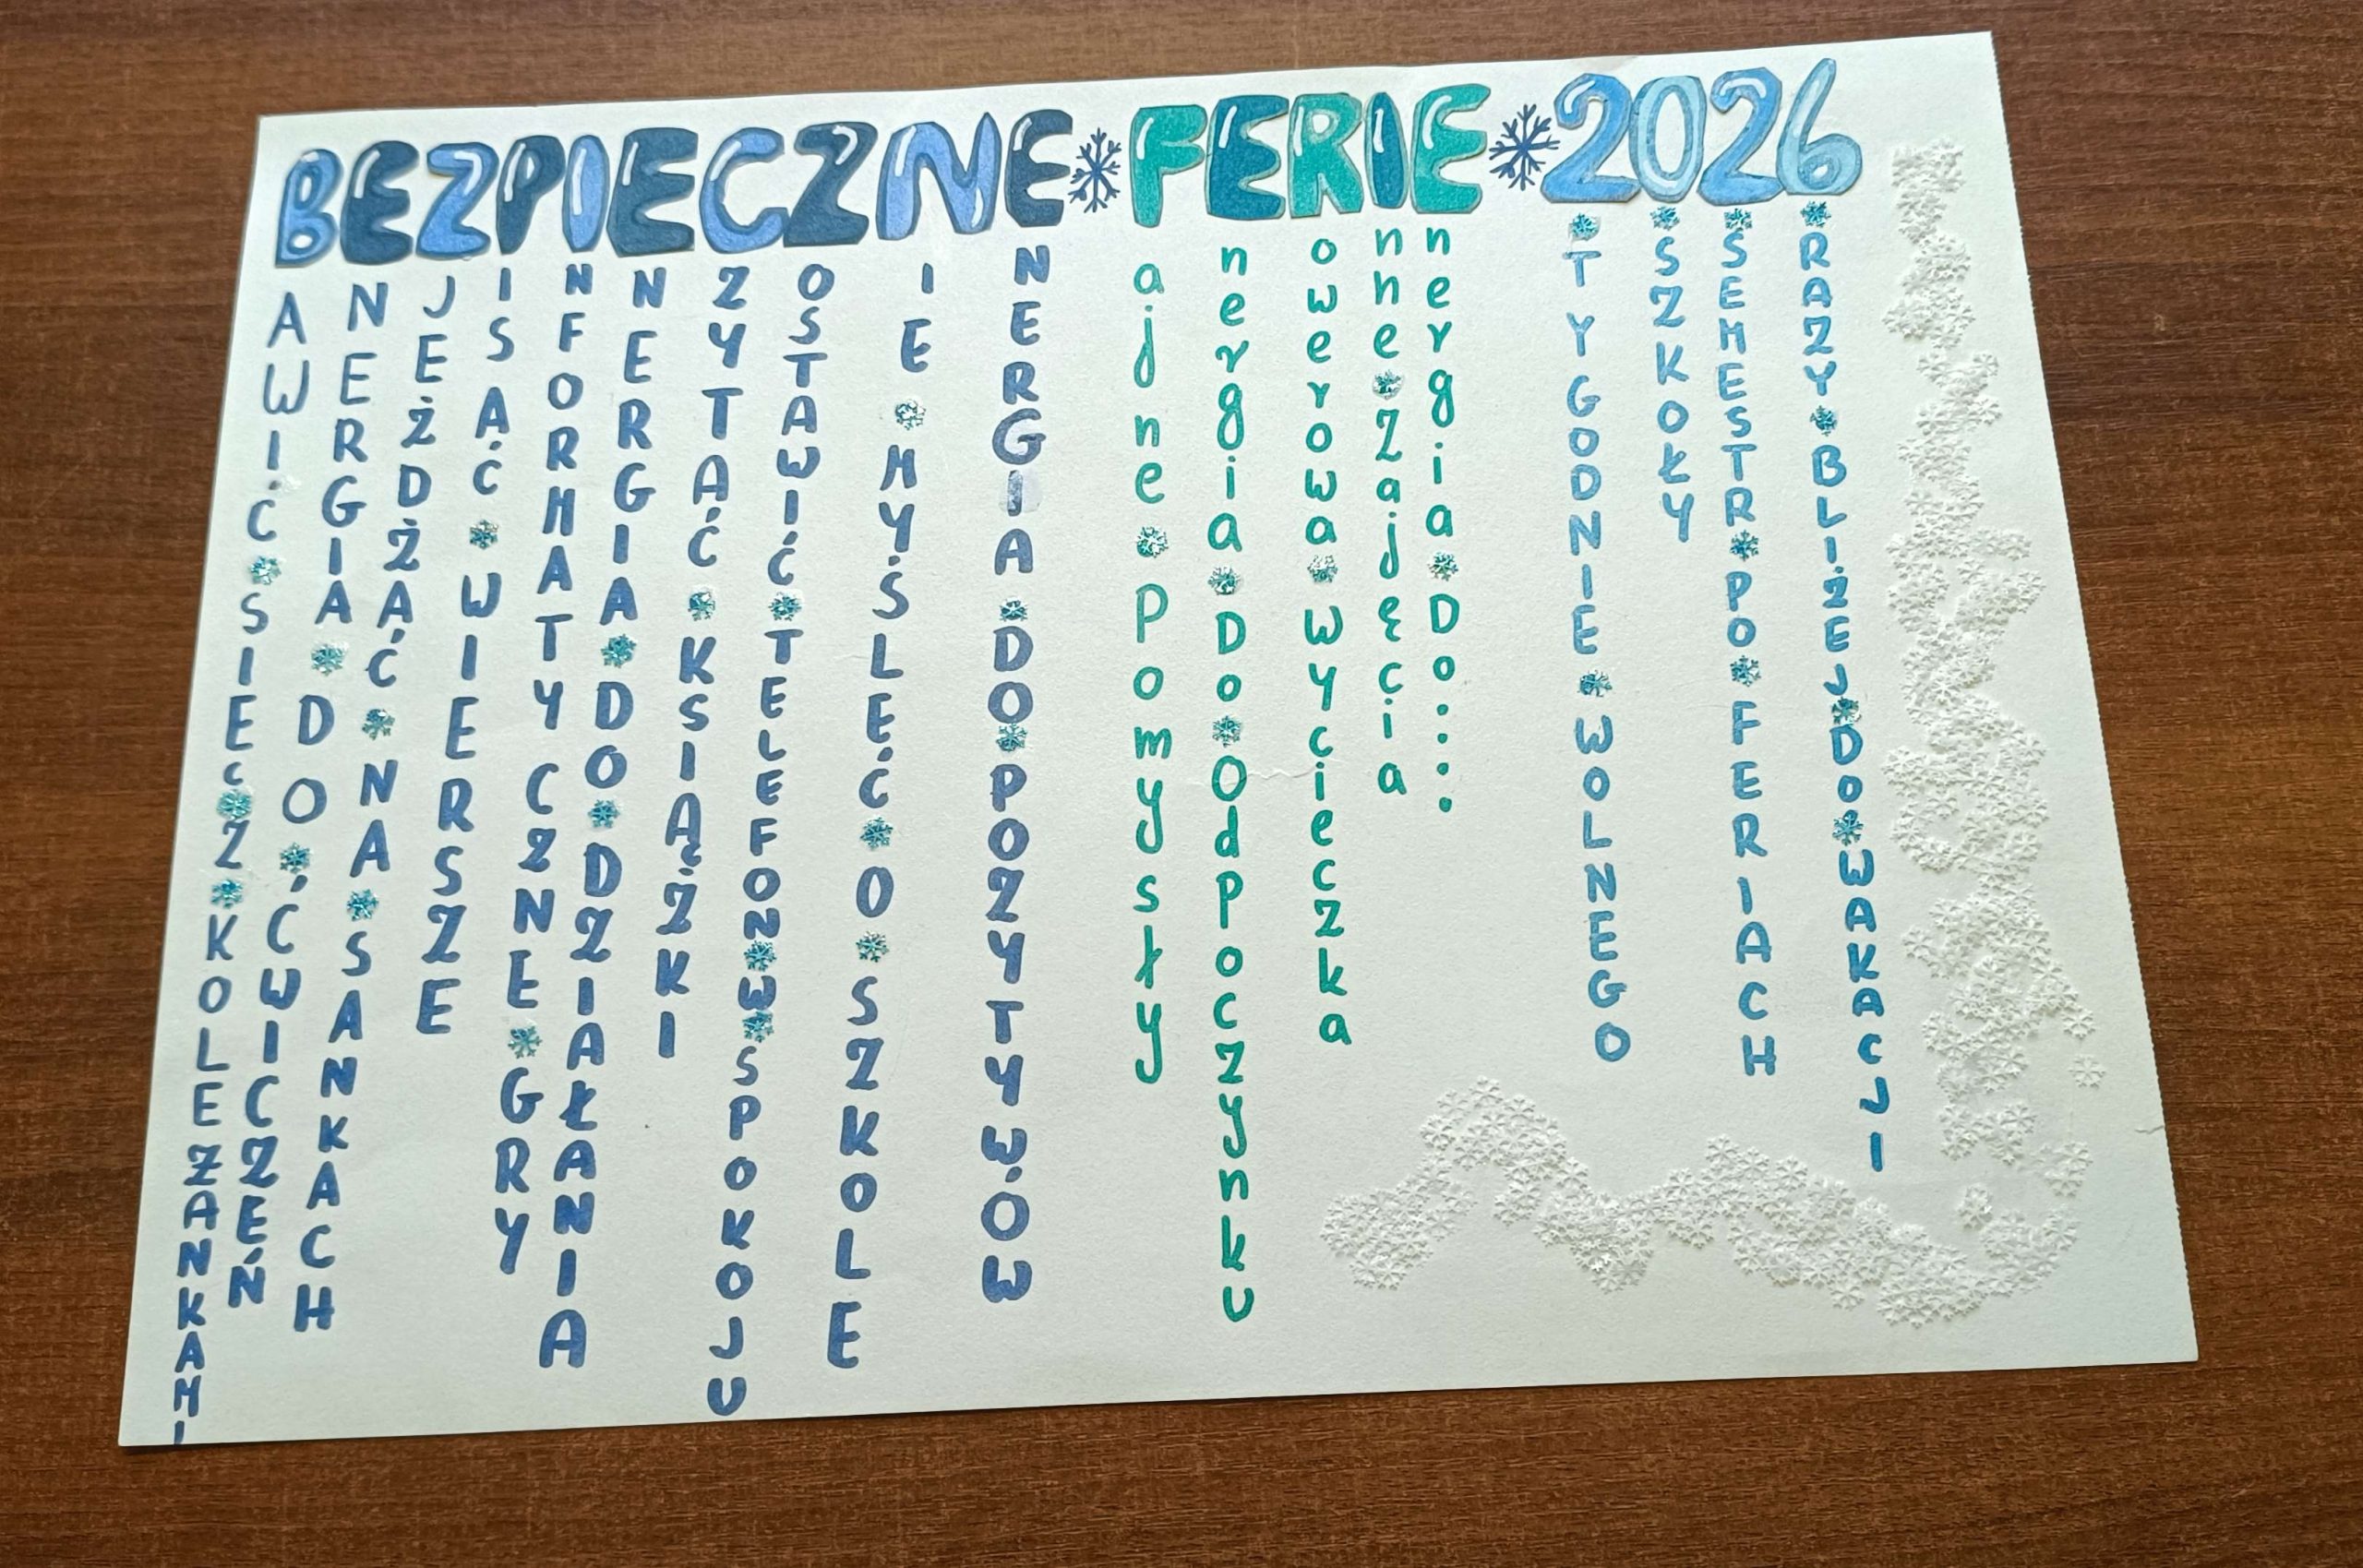 BEZPIECZNE FERIE 2026
AWIĆ SIEc Z KOLEŻANKAMI
NERGIA DO ĆWICZEŃ
JEŻDŻAĆ NA SANKACH
ISAĆ WIERSZE
NFORMATYCZNE GRY
NERGIA DO DZIAŁANIA
ZYTAĆ KSIĄŻKI
OSTAWIĆ TELEFON W SPOKOJU
IE MYŚLEĆ O SZKOLE
NERGIA DO POZYTYWÓW
ajne Pomysły
nergia Do Odpoczynku
owerowa Wycieczka
nne Zajęcia
nergia Do.....
TYGODNIE WOLNEGO
SZKOŁY
SEMESTR PO FERIACH
RAZY BLIŻEJ DO WAKACJI